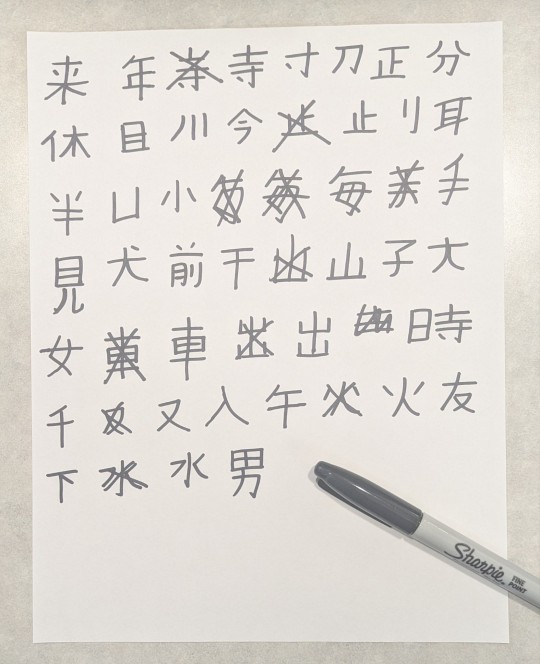 来 年 寺 寸 刀 正 分
休 目 川 今 止 刂 耳
半 凵 小 毎 手
見 犬 前 干 山 子 大
女 車 出 時
千 又 入 午 火 友
下 水 男
Sharpie
FINE POINT